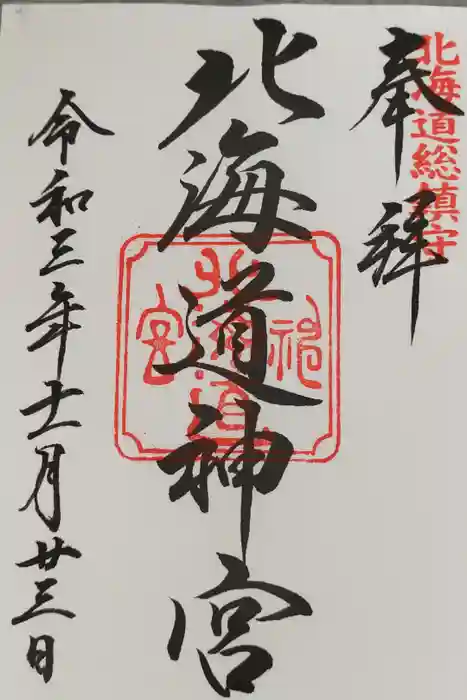 奉拝
北海道総鎮守
北海道神宮
北海道神宮
令和三年十一月廿三日